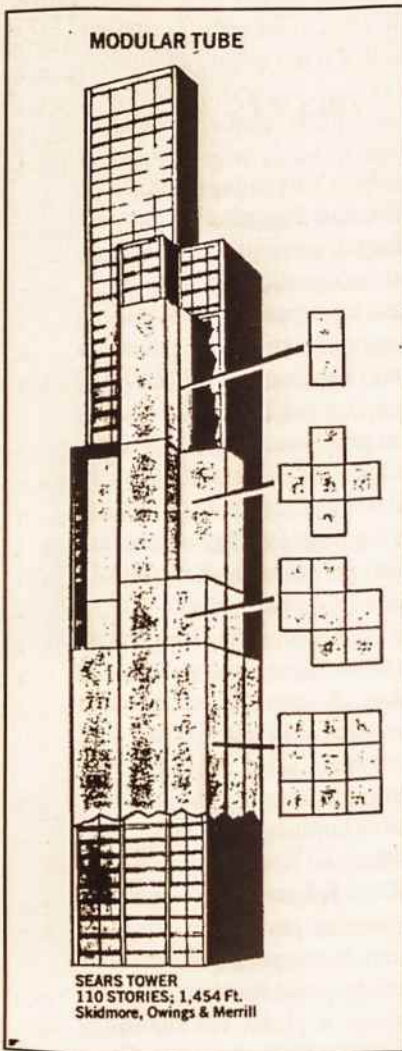 MODULAR TUBE
SEARS TOWER
110 STORIES; 1,454 Ft.
Skidmore, Owings & Merrill